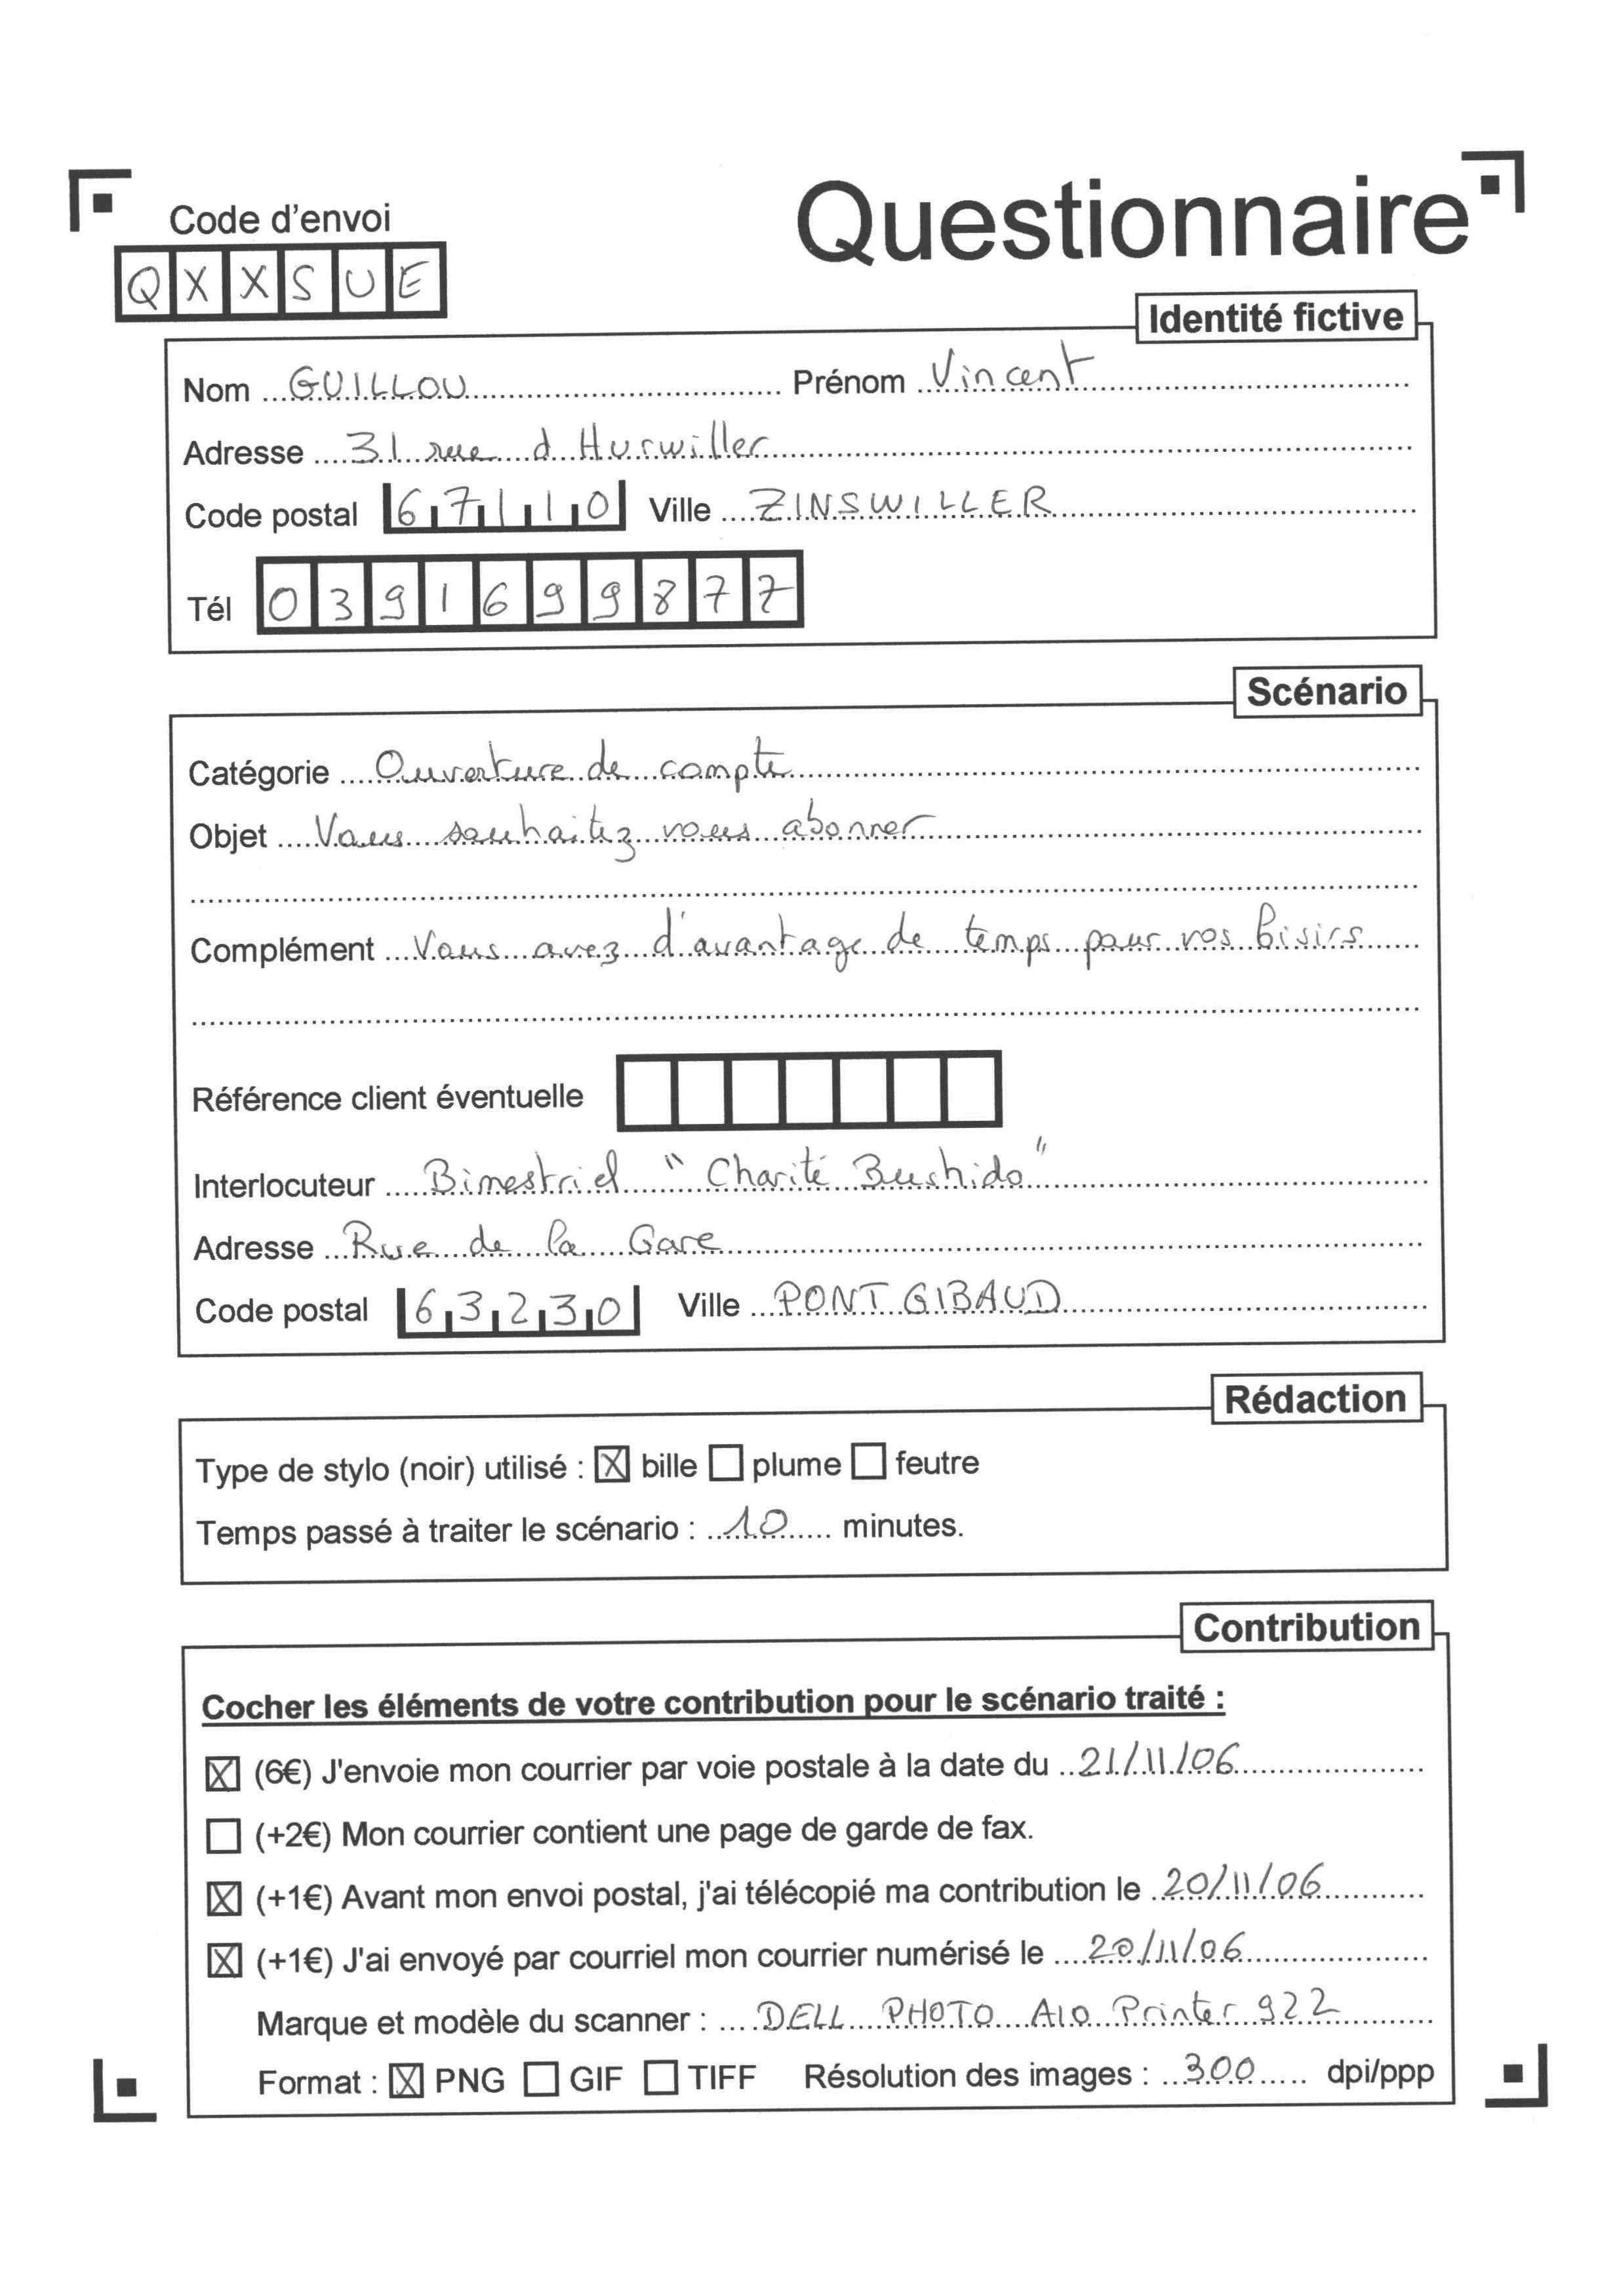 Code d'envoi
Questionnaire
QXXSUE
Identité fictive
Nom GUILLOU Prénom Vincent
Adresse 31 rue d Hurwiller
Code postal 67110 Ville ZINSWILLER
Tél 0391699877
Scénario
Catégorie Ouverture de compte
Objet Vous souhaitez vous abonner
Complément Vous avez d'avantage de temps pour vos loisirs
Référence client éventuelle
Interlocuteur Bimestriel "Charité Bushido"
Adresse Rue de la Gare
Code postal 63230 Ville PONT GIBAUD
Rédaction
Type de stylo (noir) utilisé : ☒ bille ☐ plume ☐ feutre
Temps passé à traiter le scénario : 10 minutes.
Contribution
Cocher les éléments de votre contribution pour le scénario traité :
☒ (6€) J'envoie mon courrier par voie postale à la date du 21/11/06
☐ (+2€) Mon courrier contient une page de garde de fax.
☒ (+1€) Avant mon envoi postal, j'ai télécopié ma contribution le 20/11/06
☒ (+1€) J'ai envoyé par courriel mon courrier numérisé le 20/11/06
Marque et modèle du scanner : DELL PHOTO AIO Printer 922
Format : ☒ PNG ☐ GIF ☐ TIFF Résolution des images : 300 dpi/ppp